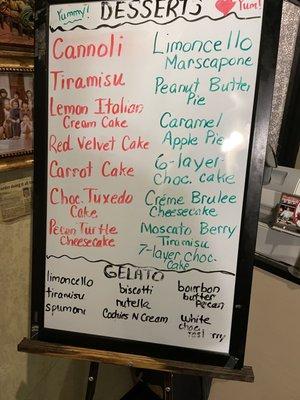 Yummy! DESSERTS Yum!
Cannoli
Tiramisu
Lemon Italian
Cream Cake
Red Velvet Cake
Carrot Cake
Choc. Tuxedo
Cake
Pecan Turtle
Cheesecake
Limoncello
Marscapone
Peanut Butter
Pie
Caramel
Apple Pie
6-layer
choc. cake
Créme Brulee
Cheesecake
Moscato Berry
Tiramisu
7-layer choc.
Cake
GELATO
limoncello
tiramisu
spumoni
biscotti
nutella
Cookies N Cream
bourbon
butter
pecan
White
choc